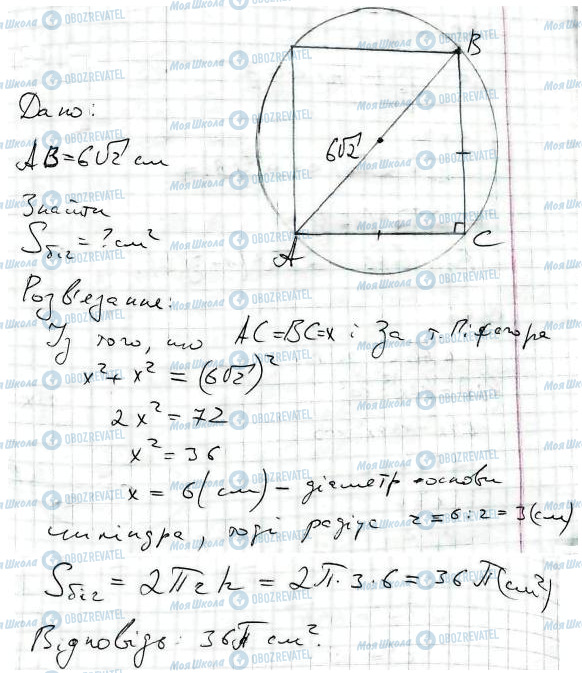 B
Дано:
AB=6√2 см
6√2
Знайти
Sбіг = ? см²
A
C
Розв'язання:
Із того, що AC=BC=x і За т. Піфагора
x² + x² = (6√2)²
2x² = 72
x² = 36
x = 6(см) – діаметр основи
циліндра, тоді радіус r = 6:2 = 3(см)
Sбіг = 2πrh = 2π·3·6 = 36π(см²)
Відповідь: 36π см².
Моя Школа OBOZREVATEL